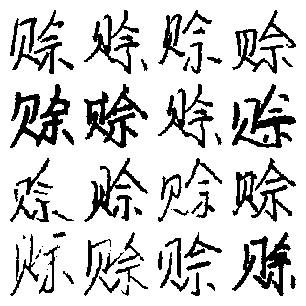 赊赊赊赊
赊赊赊赊
赊赊赊赊
赊赊赊赊